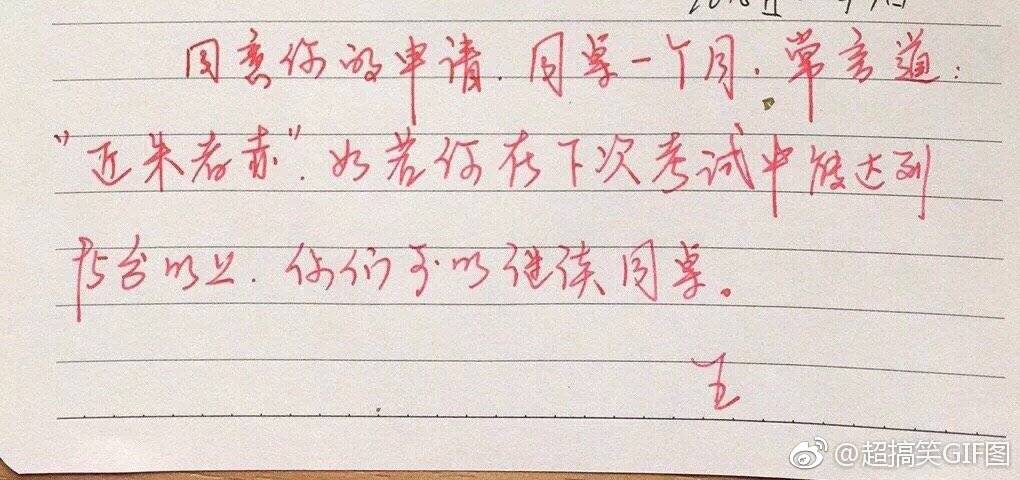 同意你的申请.同桌一个月.常言道:
"近朱者赤".如若你在下次考试中能达到
95分以上.你们可以继续同桌。
王
@超搞笑GIF图